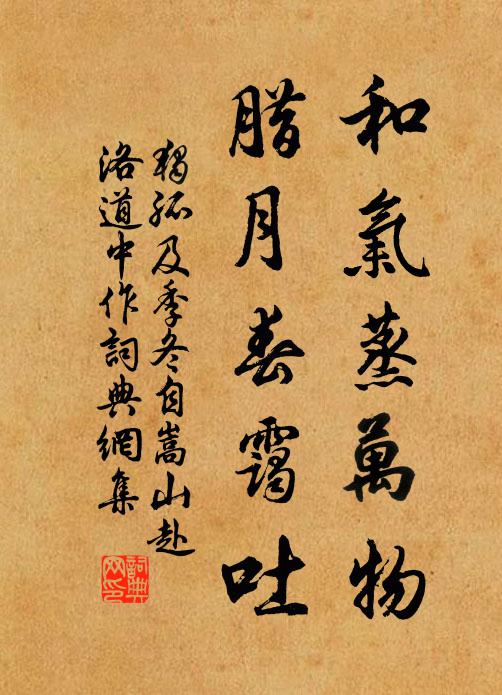 和氣蒸萬物
腊月春靄吐
獨孤及季冬自嵩山赴
洛道中作詞典網集
詞典
网印